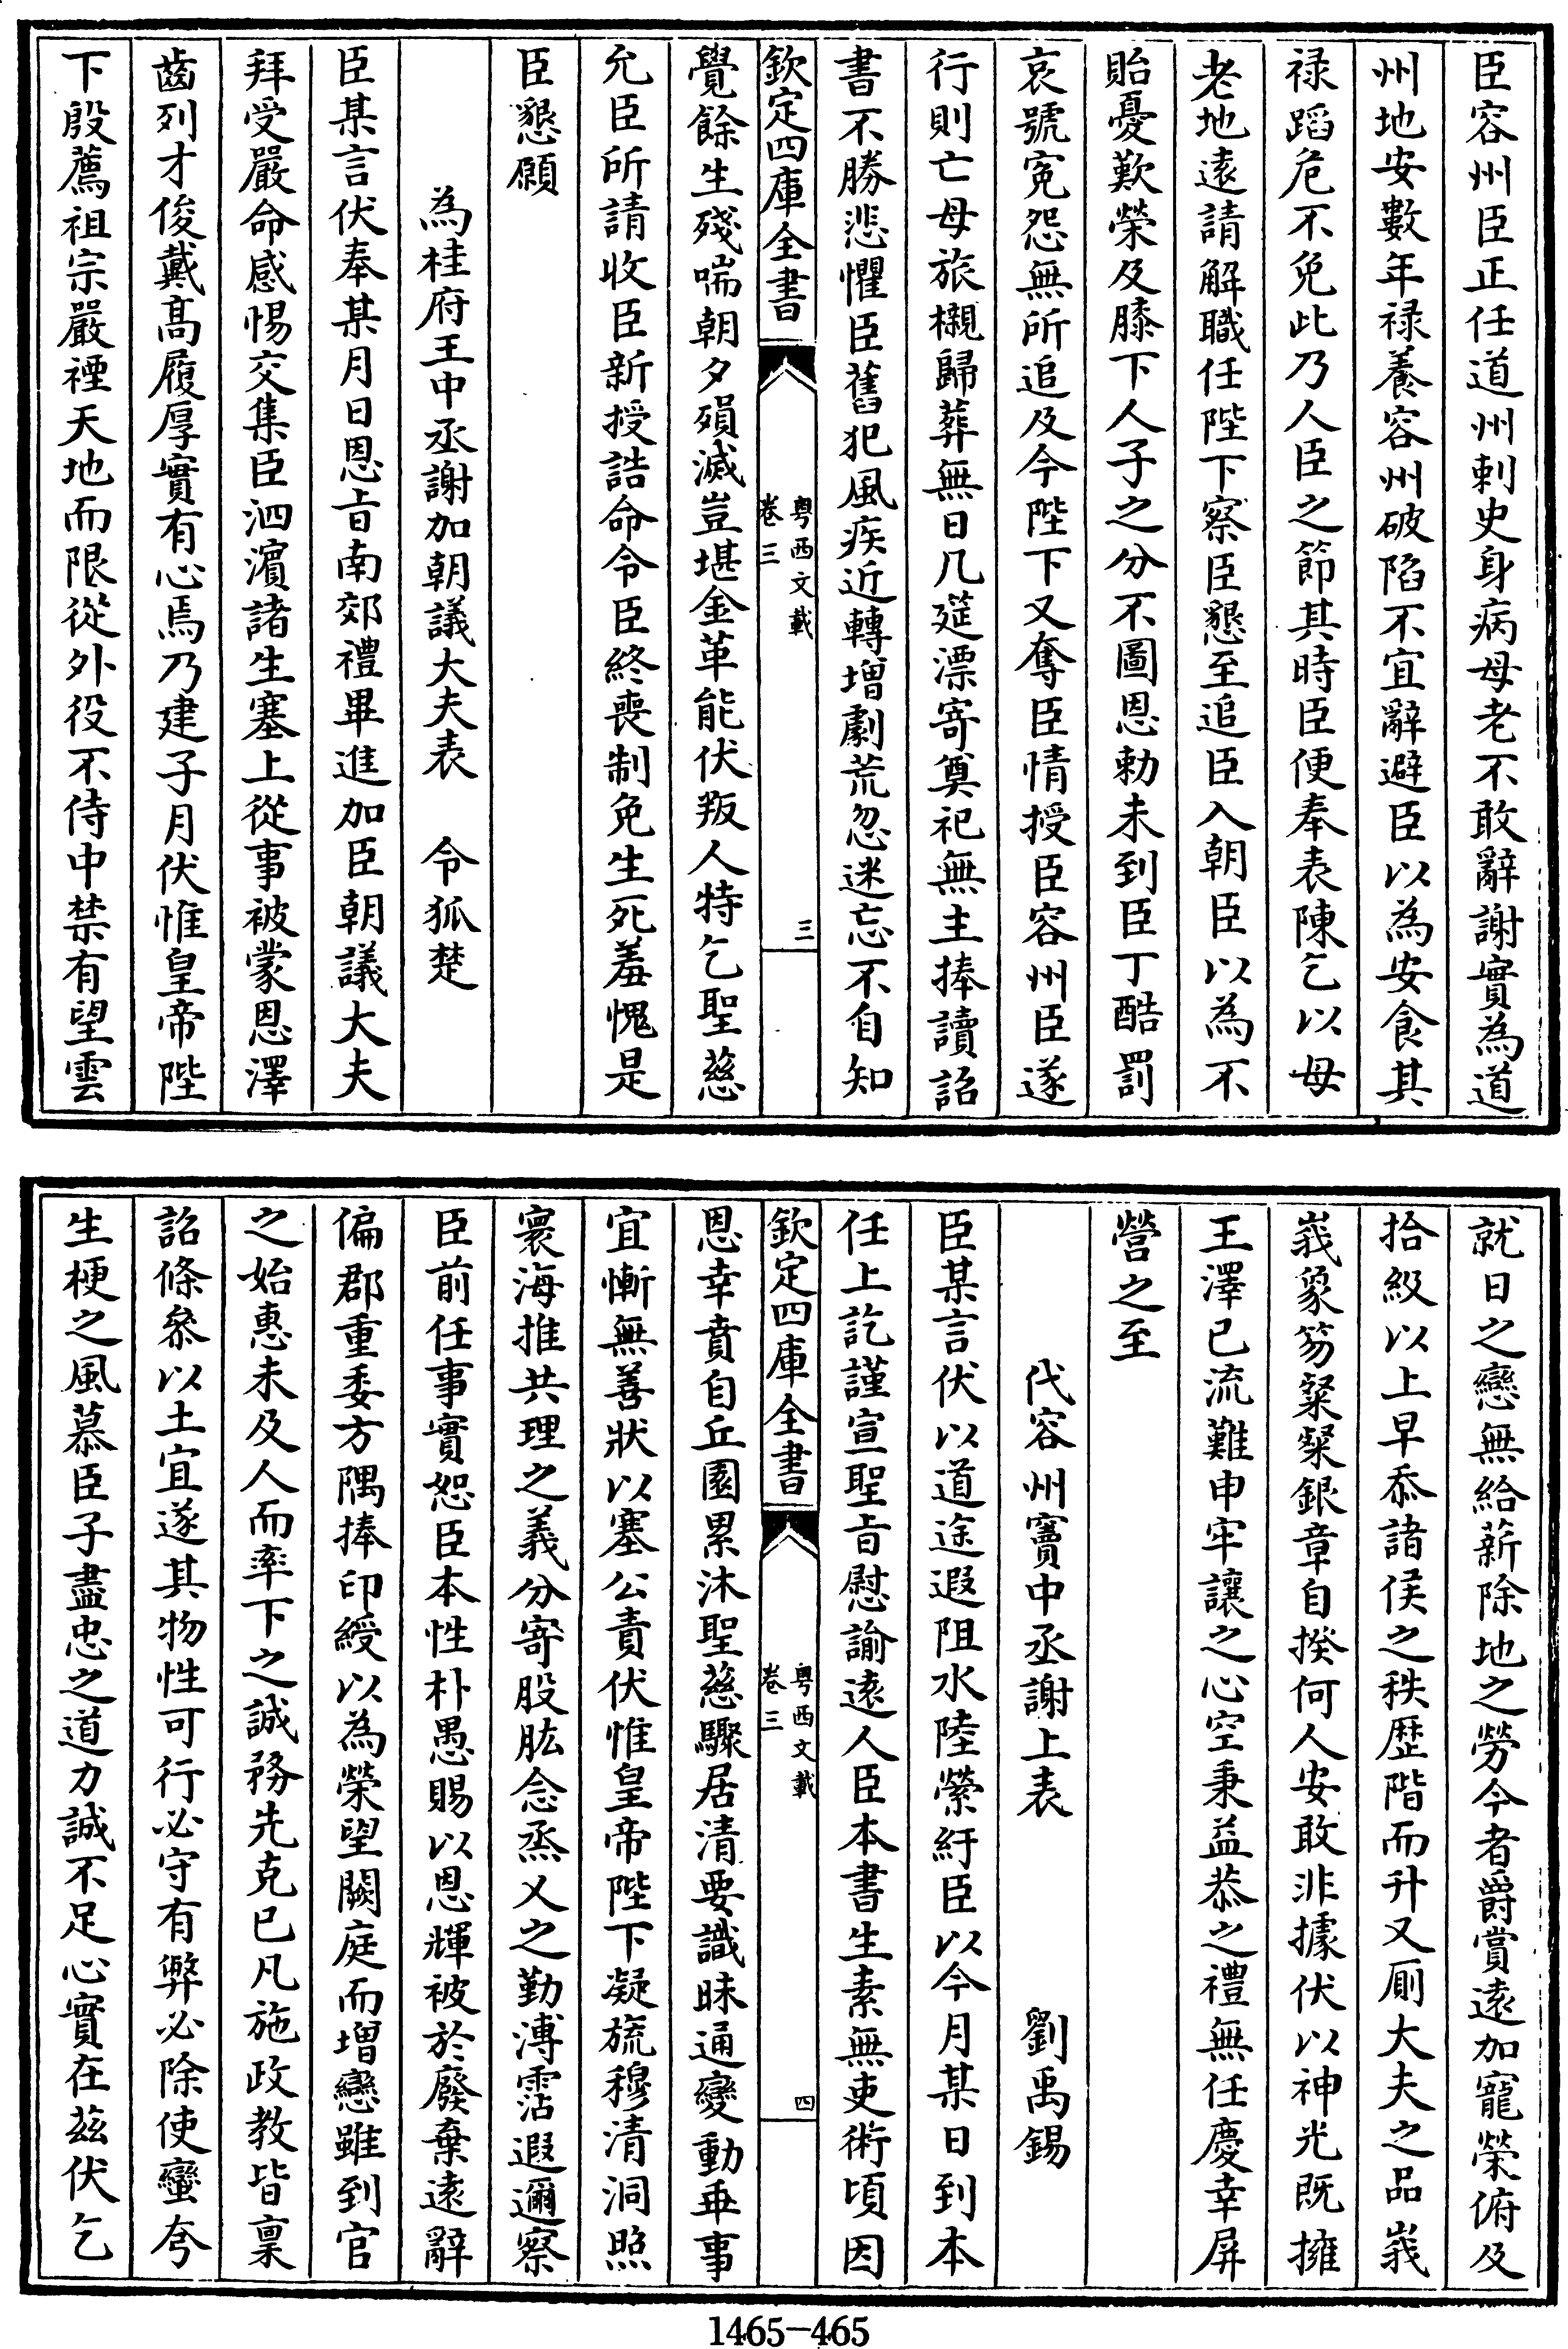 臣容州臣正任道州刺史身病母老不敢辭謝實為道
州地安數年禄養容州破陷不宜辭避臣以為安食其
禄蹈危不免此乃人臣之節其時臣便奉表陳乞以母
老地遠請解職任陛下察臣懇至追臣入朝臣以為不
貽憂歎榮及膝下人子之分不圖恩勅未到臣丁酷罰
哀號寃怨無所追及今陛下又奪臣情授臣容州臣遂
行則亡母旅櫬歸葬無日几筵漂寄奠祀無主捧讀詔
書不勝悲懼臣舊犯風疾近轉增劇荒忽迷忘不自知
欽定四庫全書
粤西文載
卷三
三
覺餘生殘喘朝夕殞滅豈堪金革能伏叛人特乞聖慈
允臣所請收臣新授誥命令臣終喪制免生死羞愧是
臣懇願
為桂府王中丞謝加朝議大夫表　令狐楚
臣某言伏奉某月日恩㫖南郊禮畢進加臣朝議大夫
拜受嚴命感惕交集臣泗濵諸生塞上從事被蒙恩澤
齒列才俊戴髙履厚實有心焉乃建子月伏惟皇帝陛
下殷薦祖宗嚴禋天地而限從外役不侍中禁有望雲
就日之戀無給薪除地之勞今者爵賞遠加寵榮俯及
拾級以上早忝諸侯之秩歴階而升又厠大夫之品峩
峩象笏粲粲銀章自揆何人安敢非據伏以神光既擁
王澤已流難申牢讓之心空秉益恭之禮無任慶幸屏
營之至
代容州竇中丞謝上表　　劉禹錫
臣某言伏以道途遐阻水陸縈紆臣以今月某日到本
任上訖謹宣聖㫖慰諭遠人臣本書生素無吏術頃因
欽定四庫全書
粤西文載
卷三
四
恩幸賁自丘園累沐聖慈驟居清要識昧通變動乖事
宜慚無善狀以塞公責伏惟皇帝陛下凝旒穆清洞照
寰海推共理之義分寄股肱念烝乂之勤溥霑遐邇察
臣前任事實恕臣本性朴愚賜以恩輝被於廢棄遠辭
偏郡重委方隅捧印綬以為榮望闕庭而增戀雖到官
之始惠未及人而率下之誠務先克已凡施政教皆稟
詔條叅以土宜遂其物性可行必守有弊必除使蠻夸
生梗之風慕臣子盡忠之道力誠不足心實在兹伏乞
1465-465